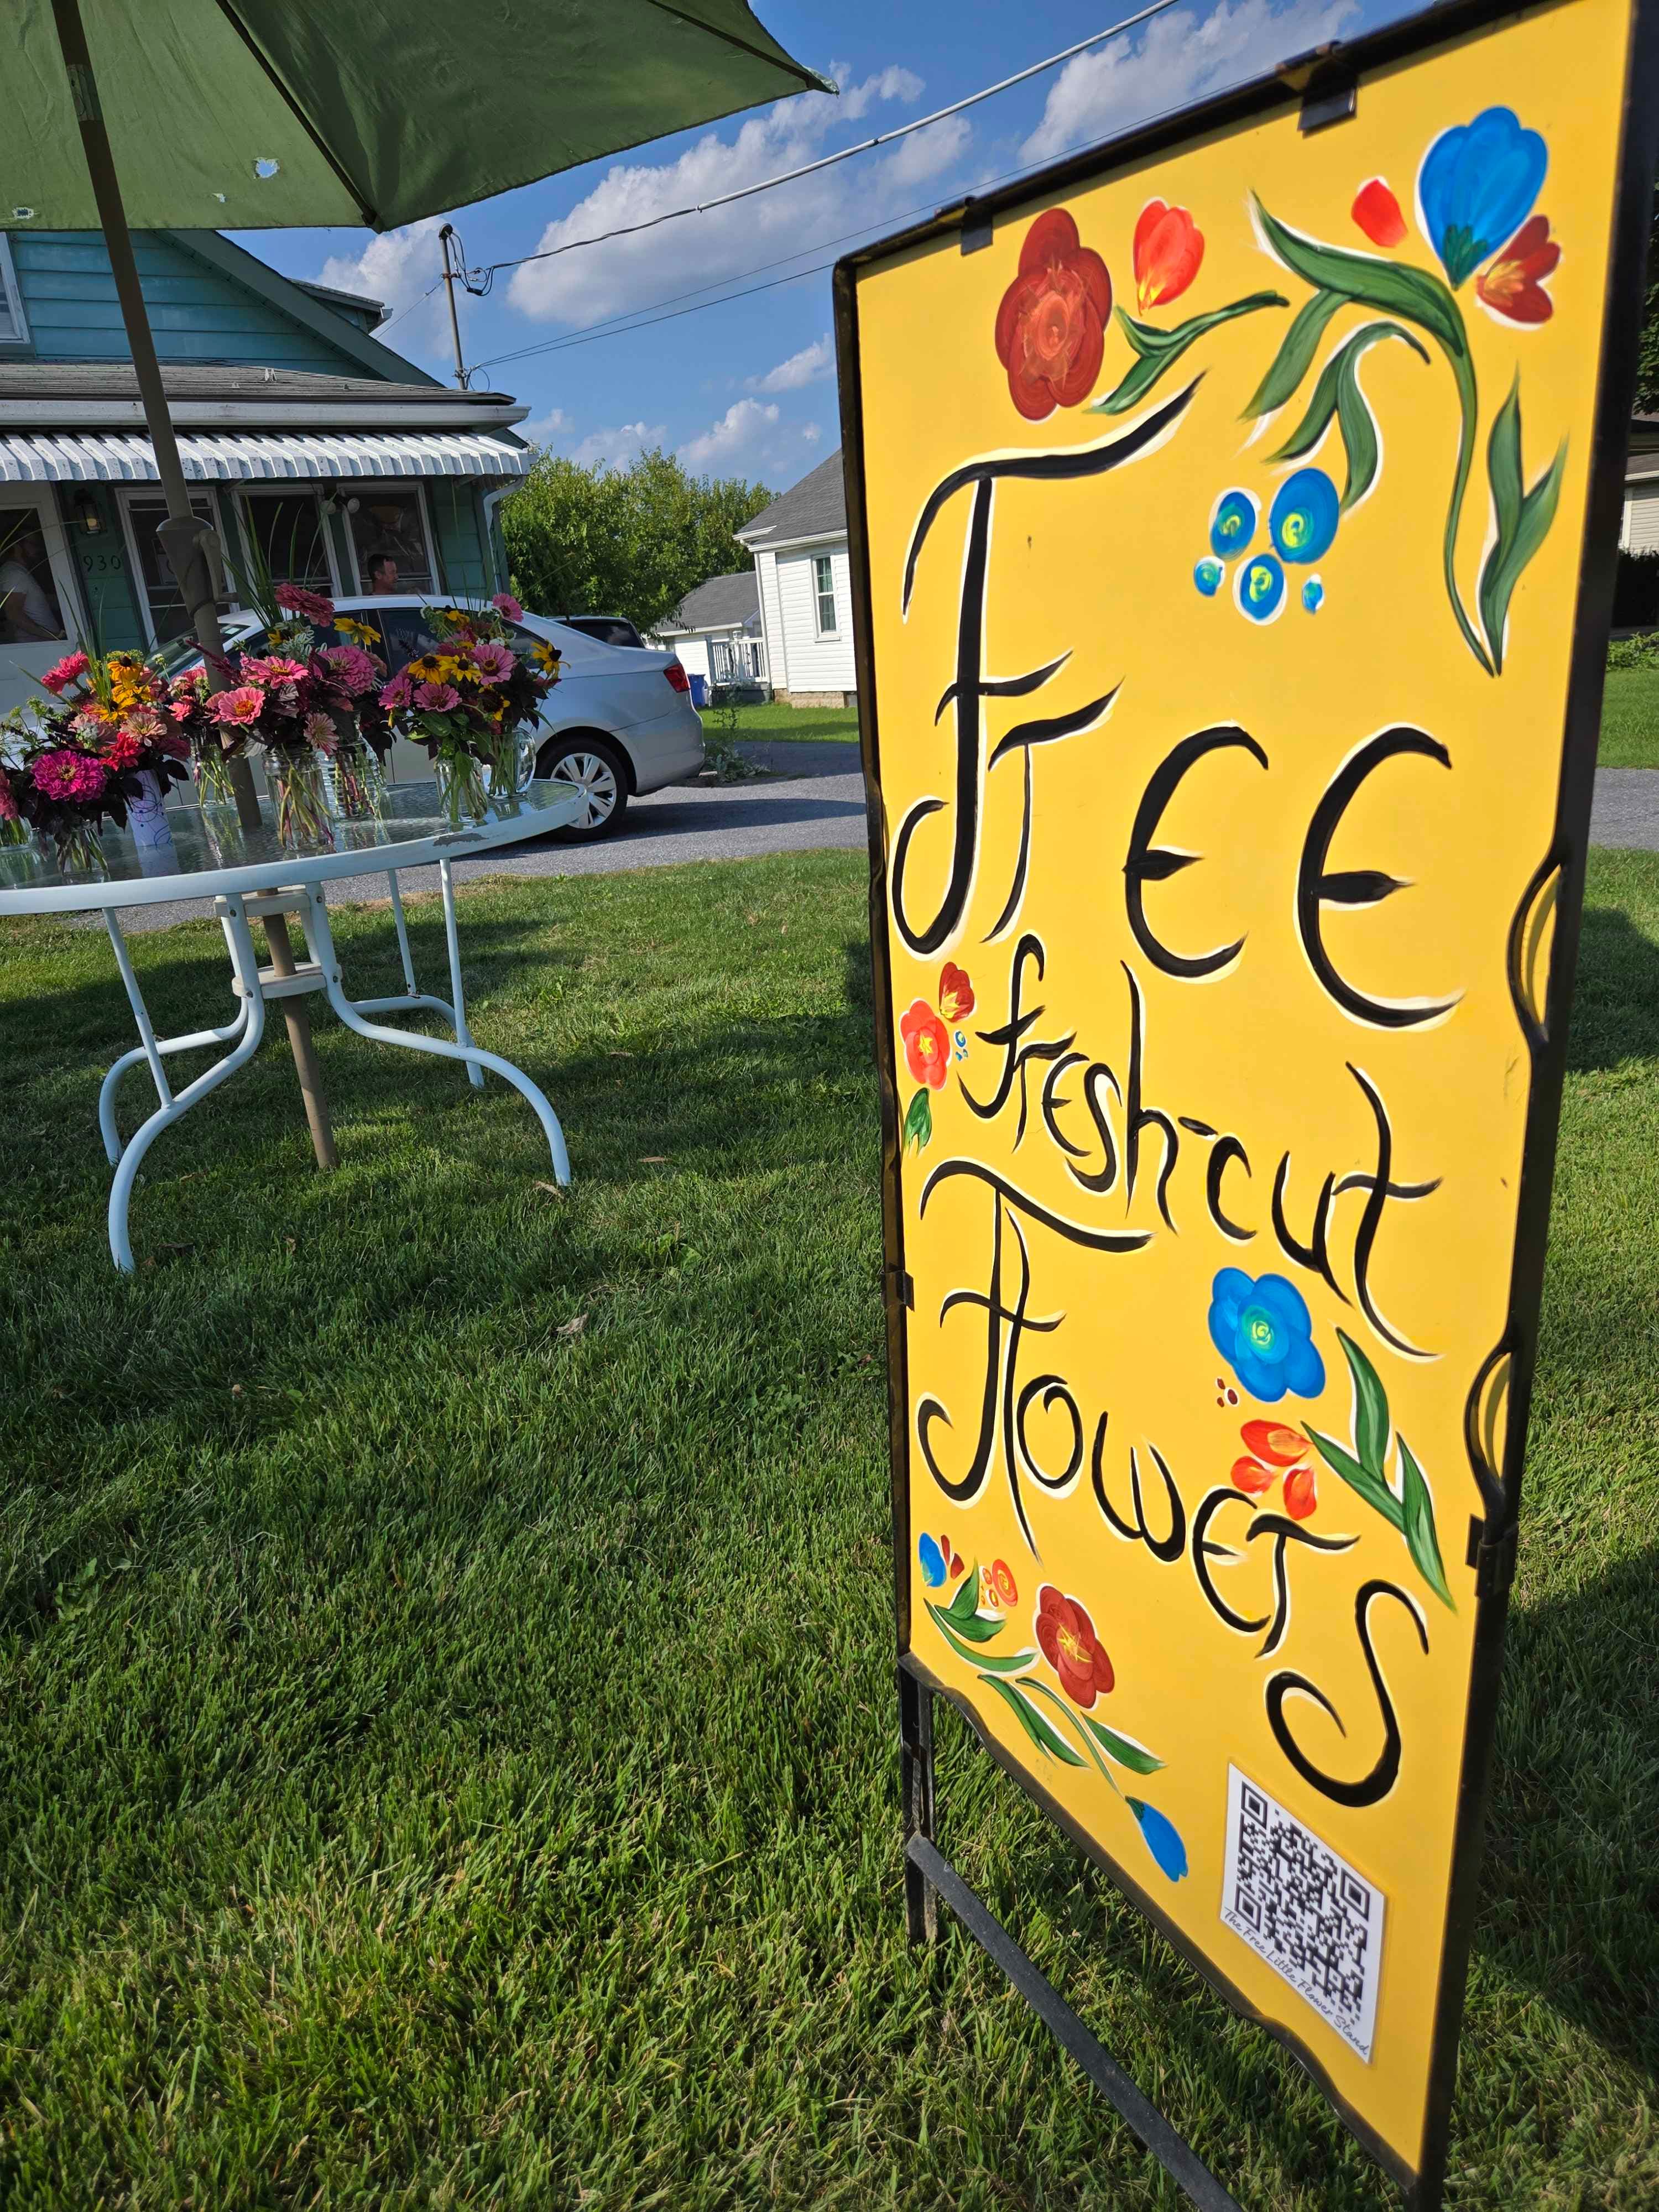 930
FrEE
fresh-cut
FlowErS
The Free Little Flower Stand